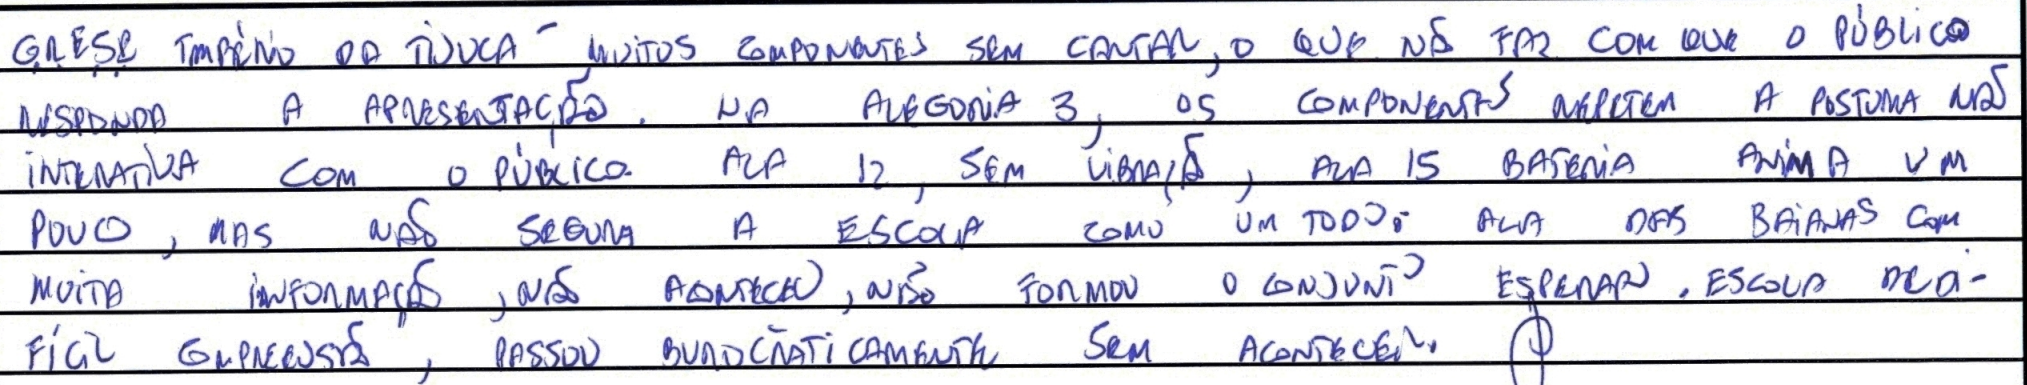 GRESE IMPÉRIO DA TIJUCA - MUITOS COMPONENTES SEM CANTAR, O QUE NÃO FAZ COM QUE O PÚBLICO
RESPONDA A APRESENTAÇÃO. NA ALEGORIA 3, OS COMPONENTES REPETEM A POSTURA NÃO
INTERATIVA COM O PÚBLICO. ALA 12, SEM VIBRAÇÃO, ALA 15 BATERIA ANIMA UM
POUCO, MAS NÃO SEGURA A ESCOLA COMO UM TODO. ALA DAS BAIANAS COM
MUITA INFORMAÇÃO, NÃO ACONTECEU, NÃO FORMOU O CONJUNTO ESPERADO. ESCOLA DE DI-
FÍCIL COMPREENSÃO, PASSOU BUROCRATICAMENTE SEM ACONTECER.